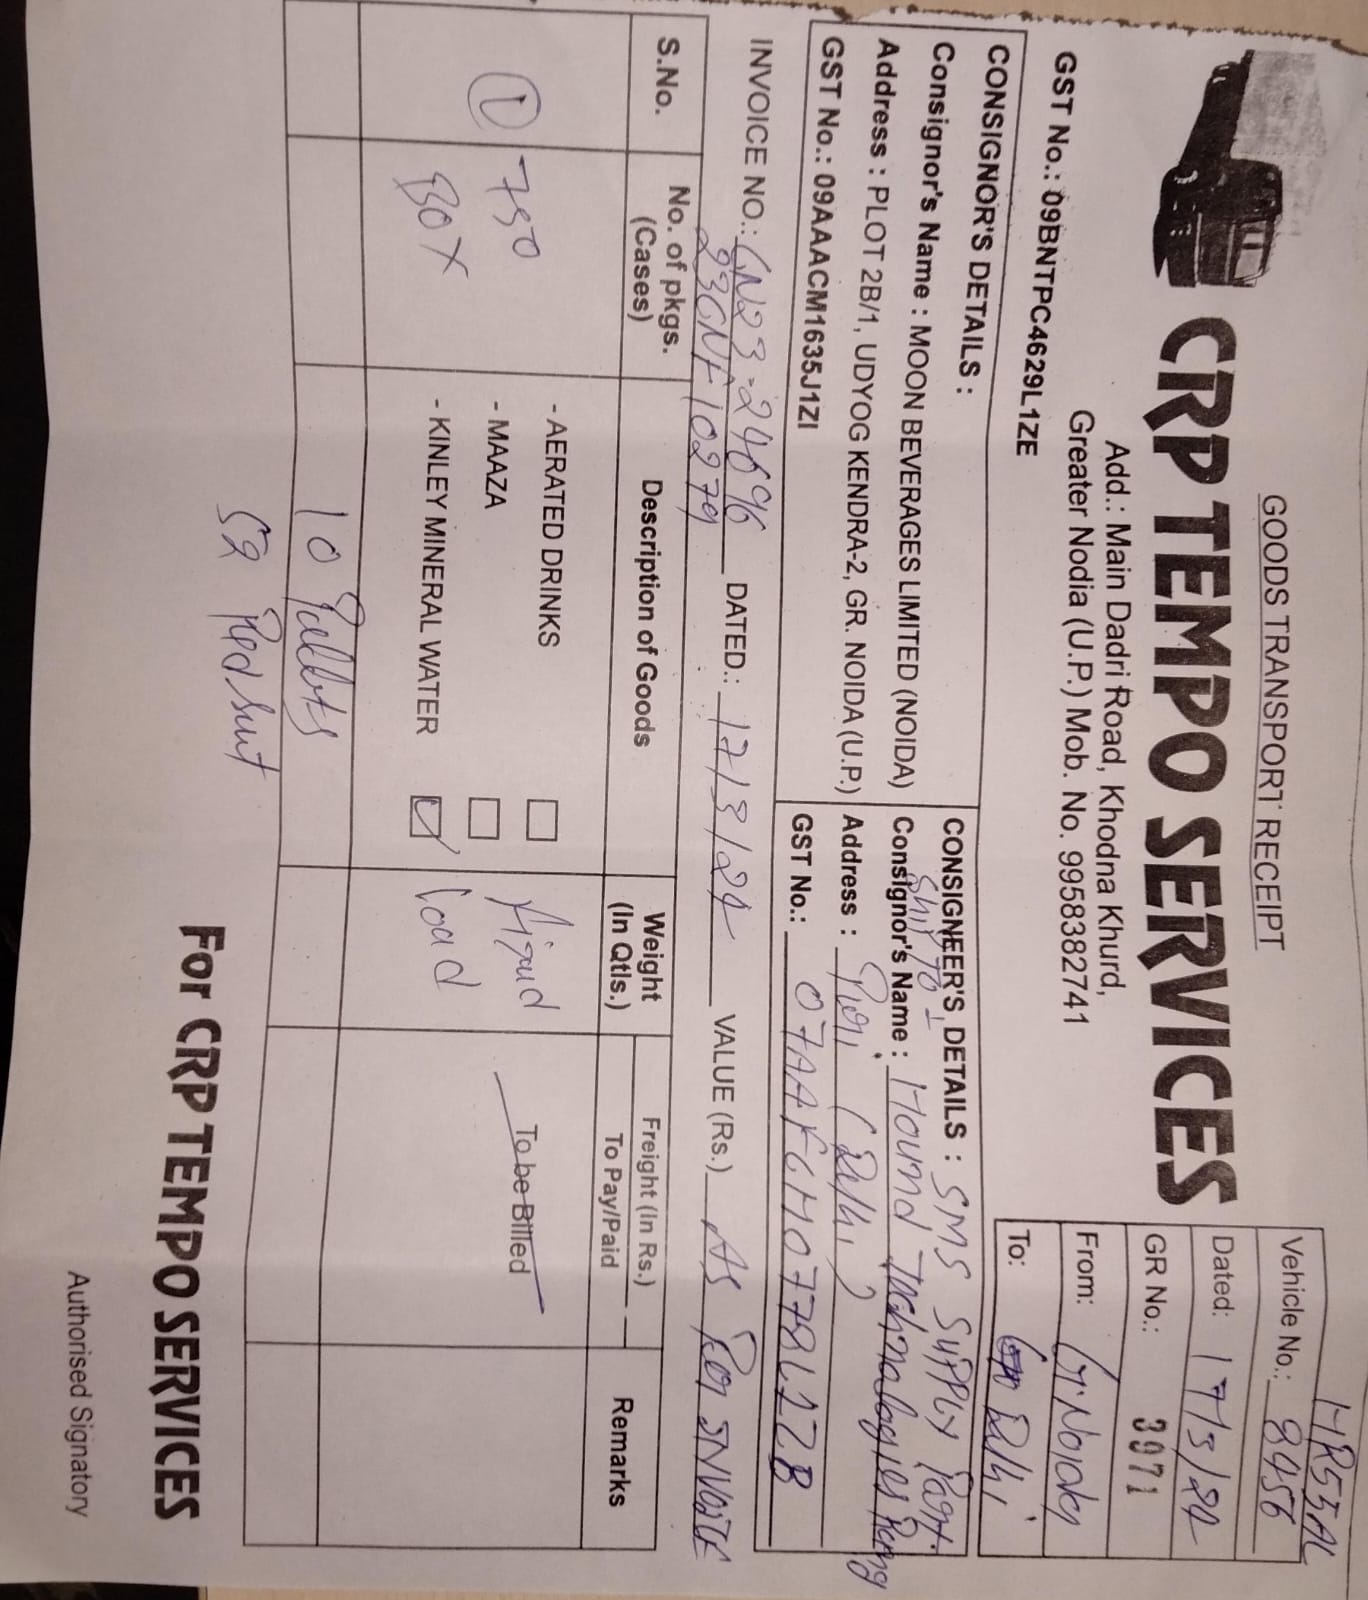 GOODS TRANSPORT RECEIPT
CRP TEMPO SERVICES
Add.: Main Dadri Road, Khodna Khurd,
Greater Nodia (U.P.) Mob. No. 9958382741
GST No.: 09BNTPC4629L1ZE
HR55AL
Vehicle No.: 8456
Dated: 17/3/24
GR No.: 3971
From: Gr. Noida
To: Delhi
CONSIGNOR'S DETAILS :
Consignor's Name : MOON BEVERAGES LIMITED (NOIDA)
Address : PLOT 2B/1, UDYOG KENDRA-2, GR. NOIDA (U.P.)
GST No.: 09AAACM1635J1ZI
CONSIGNEER'S DETAILS : SMS SUPPLY Part.
Ship To :-
Consignor's Name : Hound Technologies
Address : (Delhi)
GST No.:
INVOICE NO.: DATED.: 17/3/24 VALUE (Rs.) As Per INVOICE
S.No. No. of pkgs. (Cases) Description of Goods Weight (In Qtls.) Freight (In Rs.) To Pay/Paid Remarks
- AERATED DRINKS
① 750 - MAAZA To be Billed
- KINLEY MINERAL WATER Load
10 Pallets
52
For CRP TEMPO SERVICES
Authorised Signatory